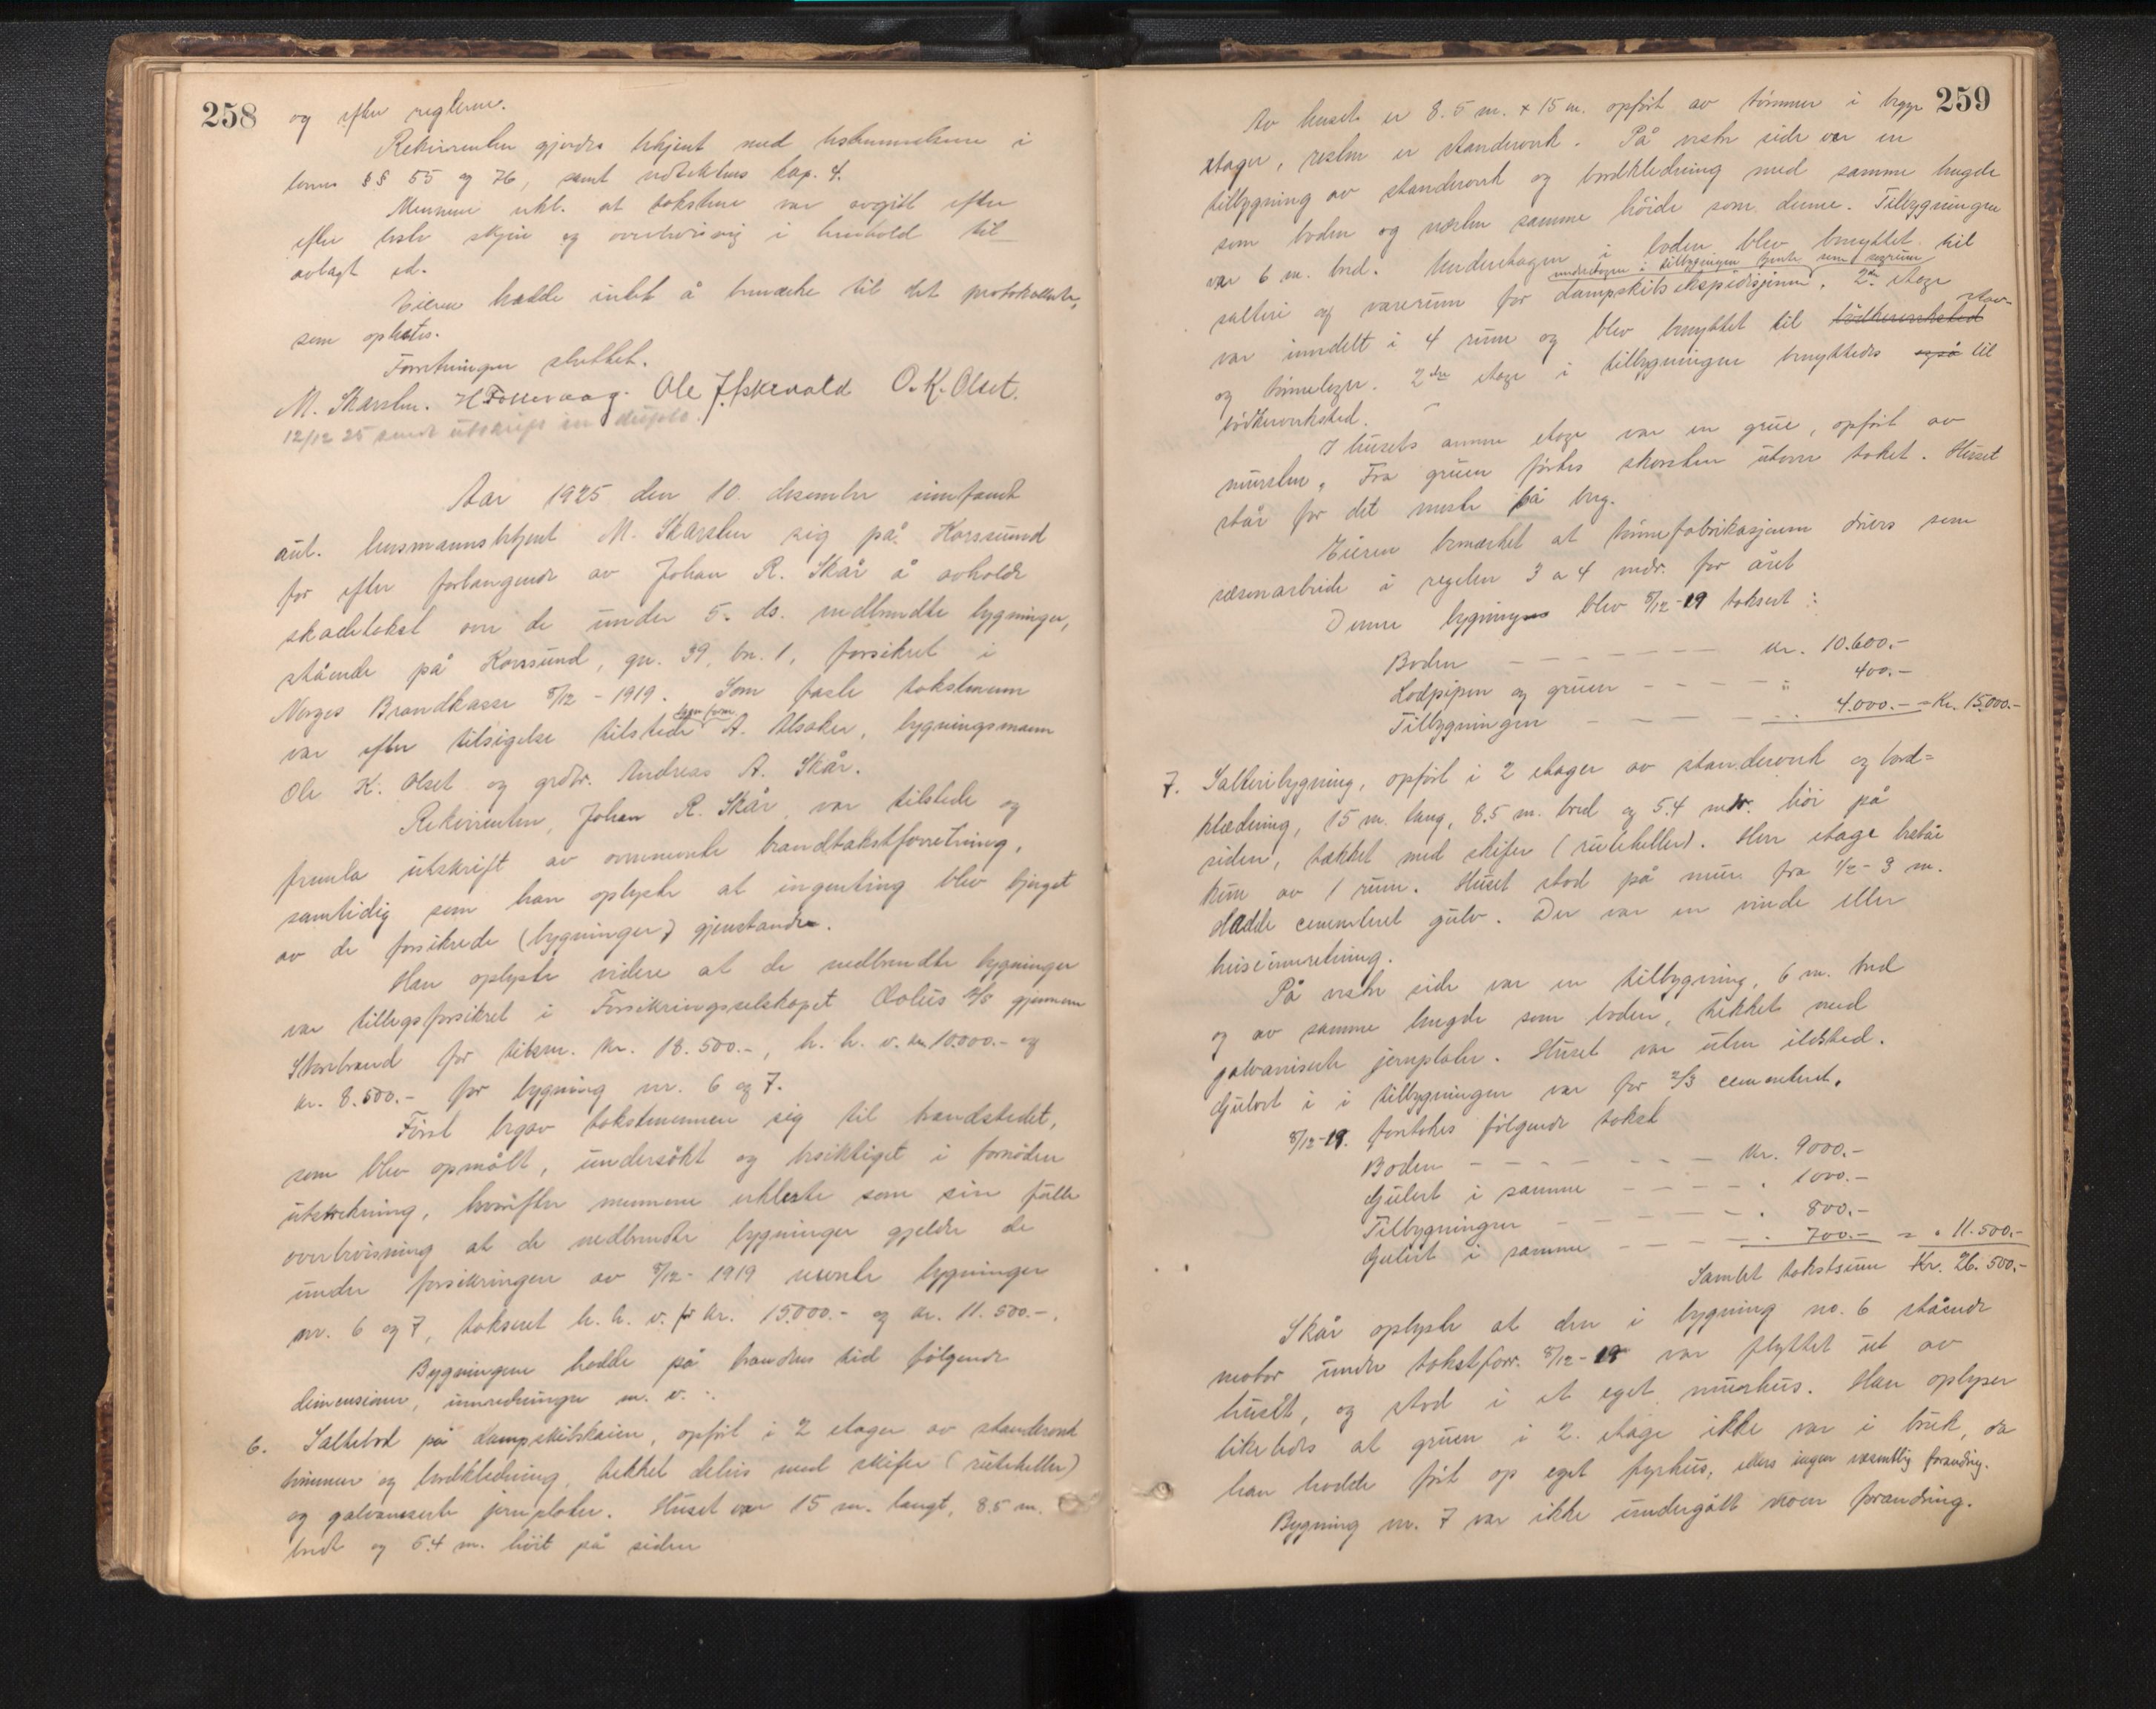 258
og efter reglerne.
Rekvirenten gjordes bekjent med bestemmelsene i
lovens §§ 55 og 76, samt vedtektens kap. 4.
Mennene erkl. at takstene var avgitt efter
efter beste skjøn og overbevisning i henhold til
avlagt ed.
Eieren hadde intet å bemærke til det protokollerte,
som oplestes.
Forretningen sluttet.
M. Skarsten. H Tollevaag. Ole J. Askevold O. K. Olset.
12/12 25 sendt utskrift in duplo.
Aar 1925 den 10. desember innfandt
aut. lensmannsbetjent M. Skarsten sig på Korssund
for efter forlangende av Johan R. Skår å avholde
skadetakst over de under 5. ds. nedbrendte bygninger,
stående på Korssund, gn. 39, bn. 1, forsikret i
Norges Brandkasse 8/12 - 1919. Som faste takstmenn
var efter tilsigelse tilstede A. Alsaker, bygningsmann
Ole K. Olset og grdbr. Andreas A. Skår.
Rekvirenten, Johan R. Skår, var tilstede og
fremla utskrift av ovennevnte brandtakstforretning,
samtidig som han oplyste at ingenting blev bjerget
av de forsikrede (bygninger) gjenstande.
Han oplyste videre at de nedbrendte bygninger
var tillegsforsikret i Forsikringsselskapet Æolus A/S gjennem
Storebrand for tilsm. kr. 18.500.-, h. h. v. kr. 10.000.- og
kr. 8.500.- for bygning nr. 6 og 7.
Først begav takstmennene sig til brandstedet,
som blev opmålt, undersøkt og besiktiget i fornøden
utstrekning, hvorefter mennene erklærte som sin fulle
overbevisning at de nedbrendte bygninger gjelder de
under forsikringen av 8/12 - 1919 nevnte bygninger
nr. 6 og 7, taksert h. h. v. for kr. 15.000.- og kr. 11.500.-.
Bygningene hadde på brandens tid følgende
dimensioner, innredninger m. v.:
6. Saltebod på dampskibskaien, opført i 2 etager av standerverk
tømmer og bordkledning, tekket delvis med skifer (ruteheller)
og galvaniserte jernplater. Huset var 15 m. langt, 8.5 m.
bredt og 5.4 m. høit på siden
259
Av huset er 8.5 m. x 15 m. opført av tømmer i begge
etager, resten er standerverk. På vestre side var en
tilbygning av standerverk og bordkledning med samme lengde
som boden og næsten samme høide som denne. Tilbygningen
var 6 m. bred. Underetagen i boden blev benyttet til
underetagen i tilbygningen tjente som
salteri og varerum for dampskibsekspedisjonen. 2. etage
var inndelt i 4 rum og blev benyttet til bødkerverksted stav-
og tønnelager. 2den etage i tilbygningen benyttedes også til
bødkerverksted.
I husets annen etage var en grue, opført av
mursten. Fra gruen førtes skorsten utover taket. Huset
står for det meste på berg.
Eieren bemærket at tønnefabrikasjonen drives som
sæsonarbeide i regelen 3 a 4 mdr. for året
Denne bygning blev 8/12-19 taksert:
Boden - - - - - - - kr. 10.600.-
Lodpipen og gruen - - - - " 400.-
Tilbygningen - - - - - - 4.000.- = Kr. 15.000.-
7. Salteribygning, opført i 2 etager av standerverk og bord=
klædning, 15 m. lang, 8.5 m. bred og 5.4 mtr. høi på
siden, tækket med skifer (ruteheller). Hver etage består
kun av 1 rum. Huset stod på mur fra 1/2 - 3 m.
Hadde cementeret gulv. Der var en vinde eller
heiseinnretning.
På vestre side var en tilbygning, 6 m. bred
og av samme lengde som boden, tekket med
galvaniserte jernplater. Huset var uten ildsted.
Gulvet i i tilbygningen var for 2/3 cementeret.
8/12-19. foretokes følgende takst
Boden - - - - - - - kr. 9000.-
Gulvet i samme - - - - - " 1000.-
Tilbygningen - - - - - - " 800.-
Gulvet i samme - - - - - " 700.- = " 11.500.-
Samlet takstsum Kr. 26.500.-
Skår oplyste at den i bygning no. 6 stående
motor under takstforr. 8/12-19 var flyttet ut av
huset, og stod i et eget murhus. Han oplyser
likeledes at gruen i 2. etage ikke var i bruk, da
han hadde ført op eget fyrhus, ellers ingen væsentlig forandring.
Bygning nr. 7 var ikke undergått noen forandring.